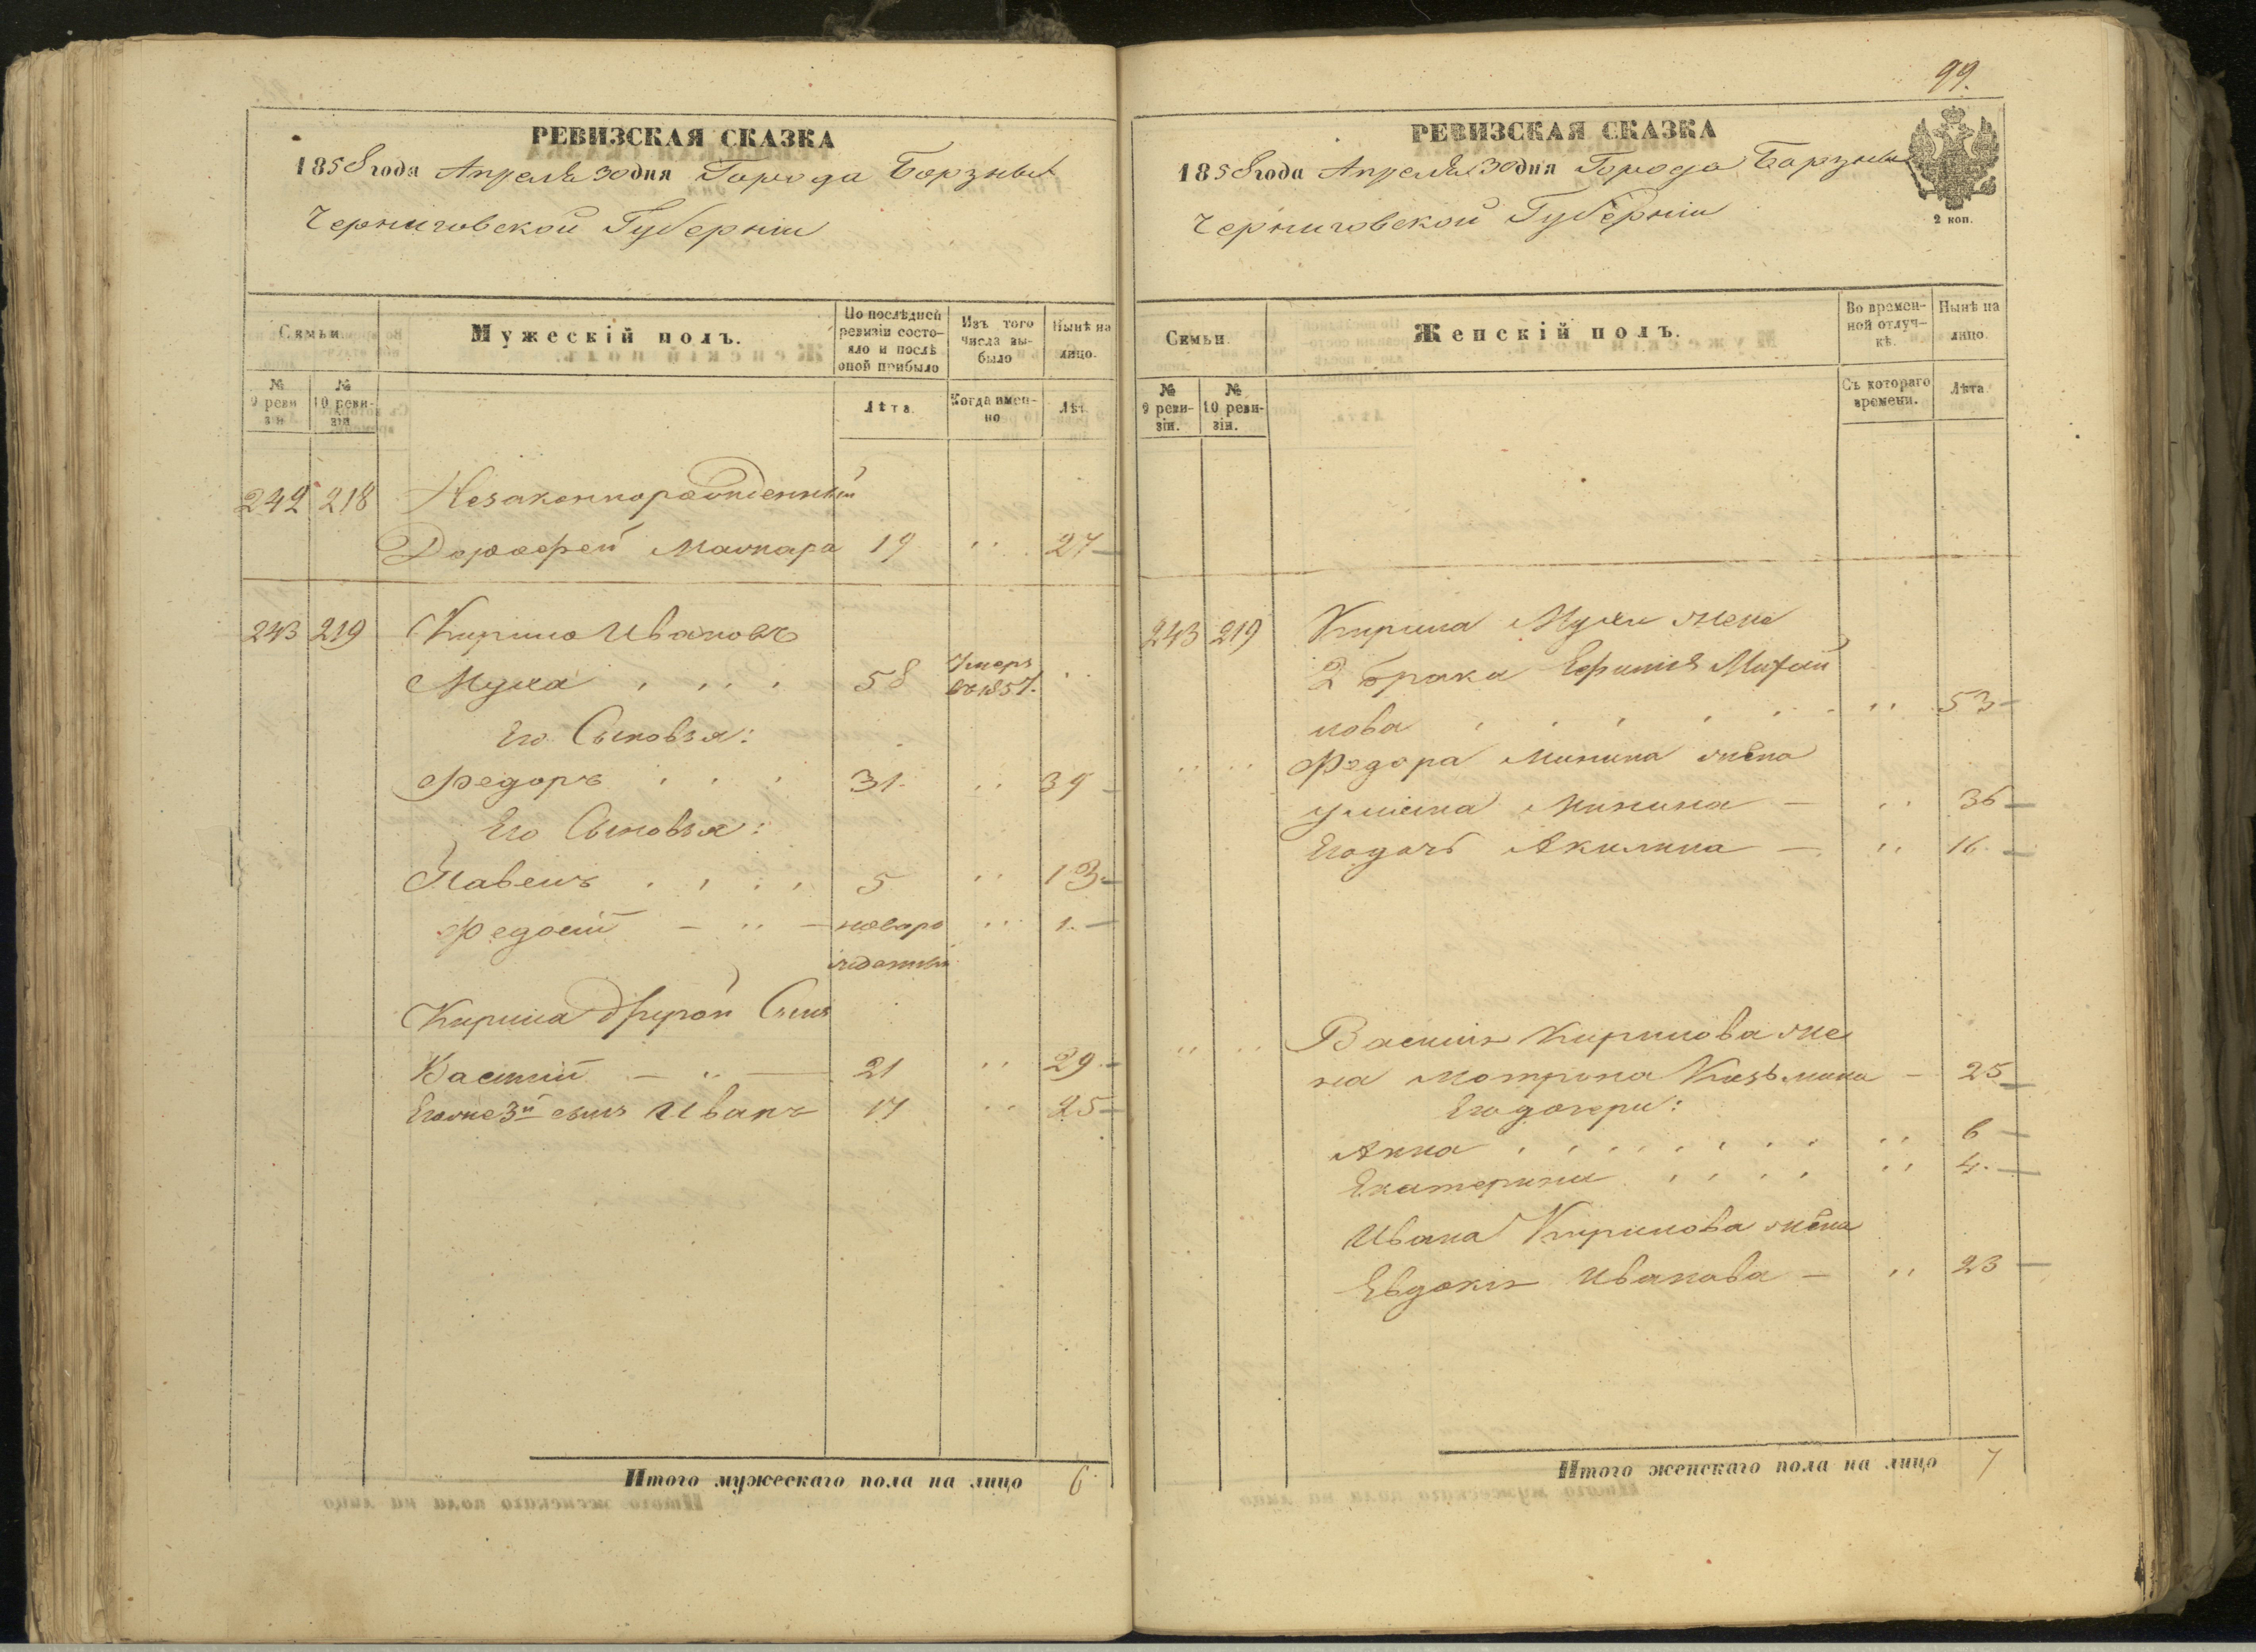 РЕВИЗСКАЯ СКАЗКА
1858 года Апреля 30 дня Города Борзны
Черниговской Губернии
Семьи
Мужескій полъ.
По послѣдней ревизіи состояло и послѣ оной прибыло
Изъ того числа выбыло
Нынѣ на лицо.
№ 9 ревизіи
№ 10 ревизіи
Лѣта.
Когда именно
Лѣт
242 218 Незаконнорожденный
Дорофей 19 " 27
243 219 Кирило Ивановъ
Муха 58 Умеръ въ 1857.
Его Сыновья:
Федоръ 31. " 39
Его Сыновья:
Павелъ 5 " 13
Федосій новоро " 1.
жденный
Кирила другой Сынъ
Василій 21 " 29
Его же 3й сынъ Иванъ 17 " 25
Итого мужескаго пола на лицо 6
99.
РЕВИЗСКАЯ СКАЗКА
1858 года Апреля 30 дня Города Борзны
Черниговской Губерніи
2 коп.
Семьи.
Женскій полъ.
Во временной отлучкѣ.
Нынѣ на лицо.
№ 9 ревизіи.
№ 10 ревизіи.
Съ котораго времени.
Лѣта
243 219 Кирила Мухи жена
2 брака
нова " 53
" " Федора жена
" 36
Его дочь Акилина " 16
" " Василія Кирилова же
на Мотрона Козьмина 25
Его дочери:
Анна " 6
Екатерина " 4.
Ивана Кирилова жена
Евдокія Иванова " 23
Итого женскаго пола на лицо 7